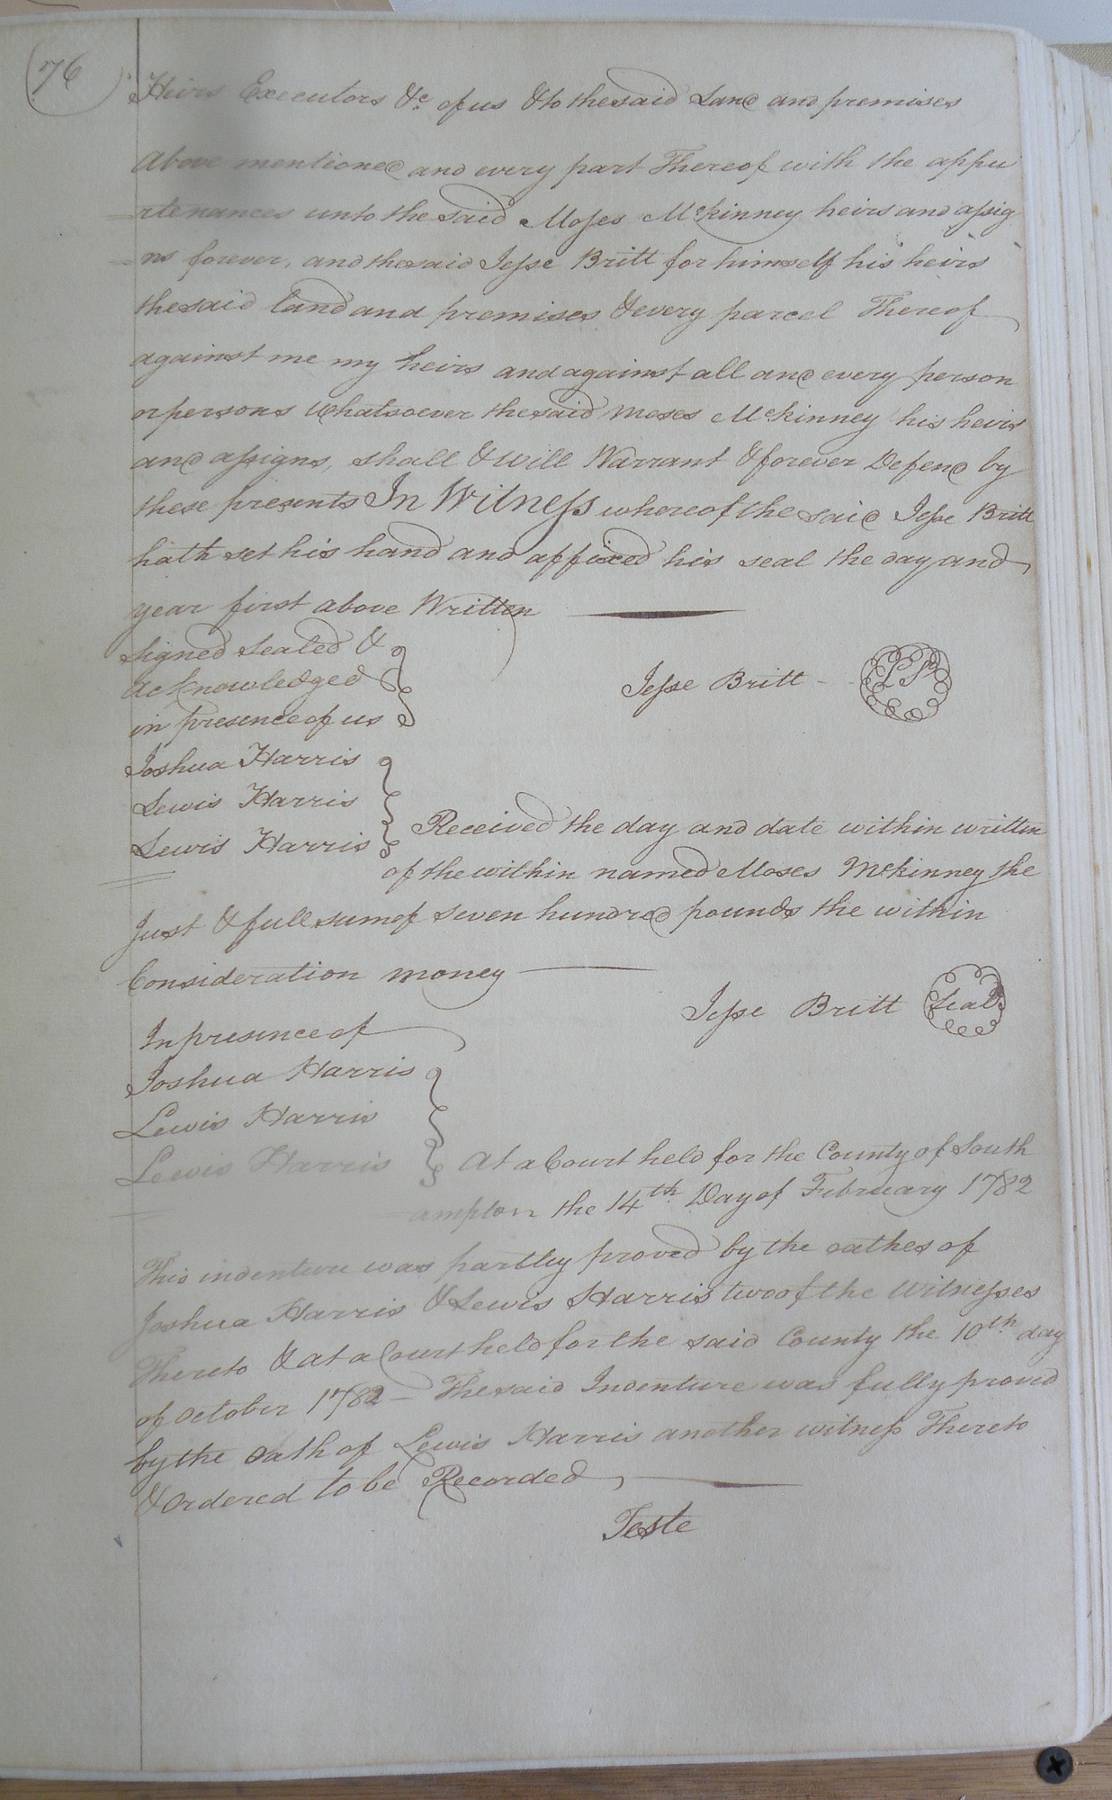 76
Heirs Executors &c. of us & to the said Land and premises
Above mentioned and every part Thereof with the appu
rtenances unto the said Moses McKinney heirs and assig
ns forever, and the said Jesse Britt for himself his heirs
the said land and premises & every parcel Thereof
against me my heirs and against all and every person
or persons whatsoever the said Moses McKinney his heirs
and assigns, shall & will Warrant & forever Defend by
these presents In Witness whereof the said Jesse Britt
hath set his hand and affixed his seal the day and
year first above Written
Signed Sealed &
Acknowledged
in presence of us
Jesse Britt - LS
Joshua Harris
Lewis Harris
Lewis Harris
Received the day and date within written
of the within named Moses McKinney the
Just & full sum of seven hundred pounds the within
Consideration money
Jesse Britt Seal
In presence of
Joshua Harris
Lewis Harris
Lewis Harris
At a Court held for the County of South
ampton the 14th Day of February 1782
This indenture was partley proved by the oathes of
Joshua Harris & Lewis Harris two of the Witnesses
Thereto & at a Court held for the said County the 10th day
of October 1782 - The said Indenture was fully proved
by the oath of Lewis Harris another witness Thereto
& ordered to be Recorded,
Teste